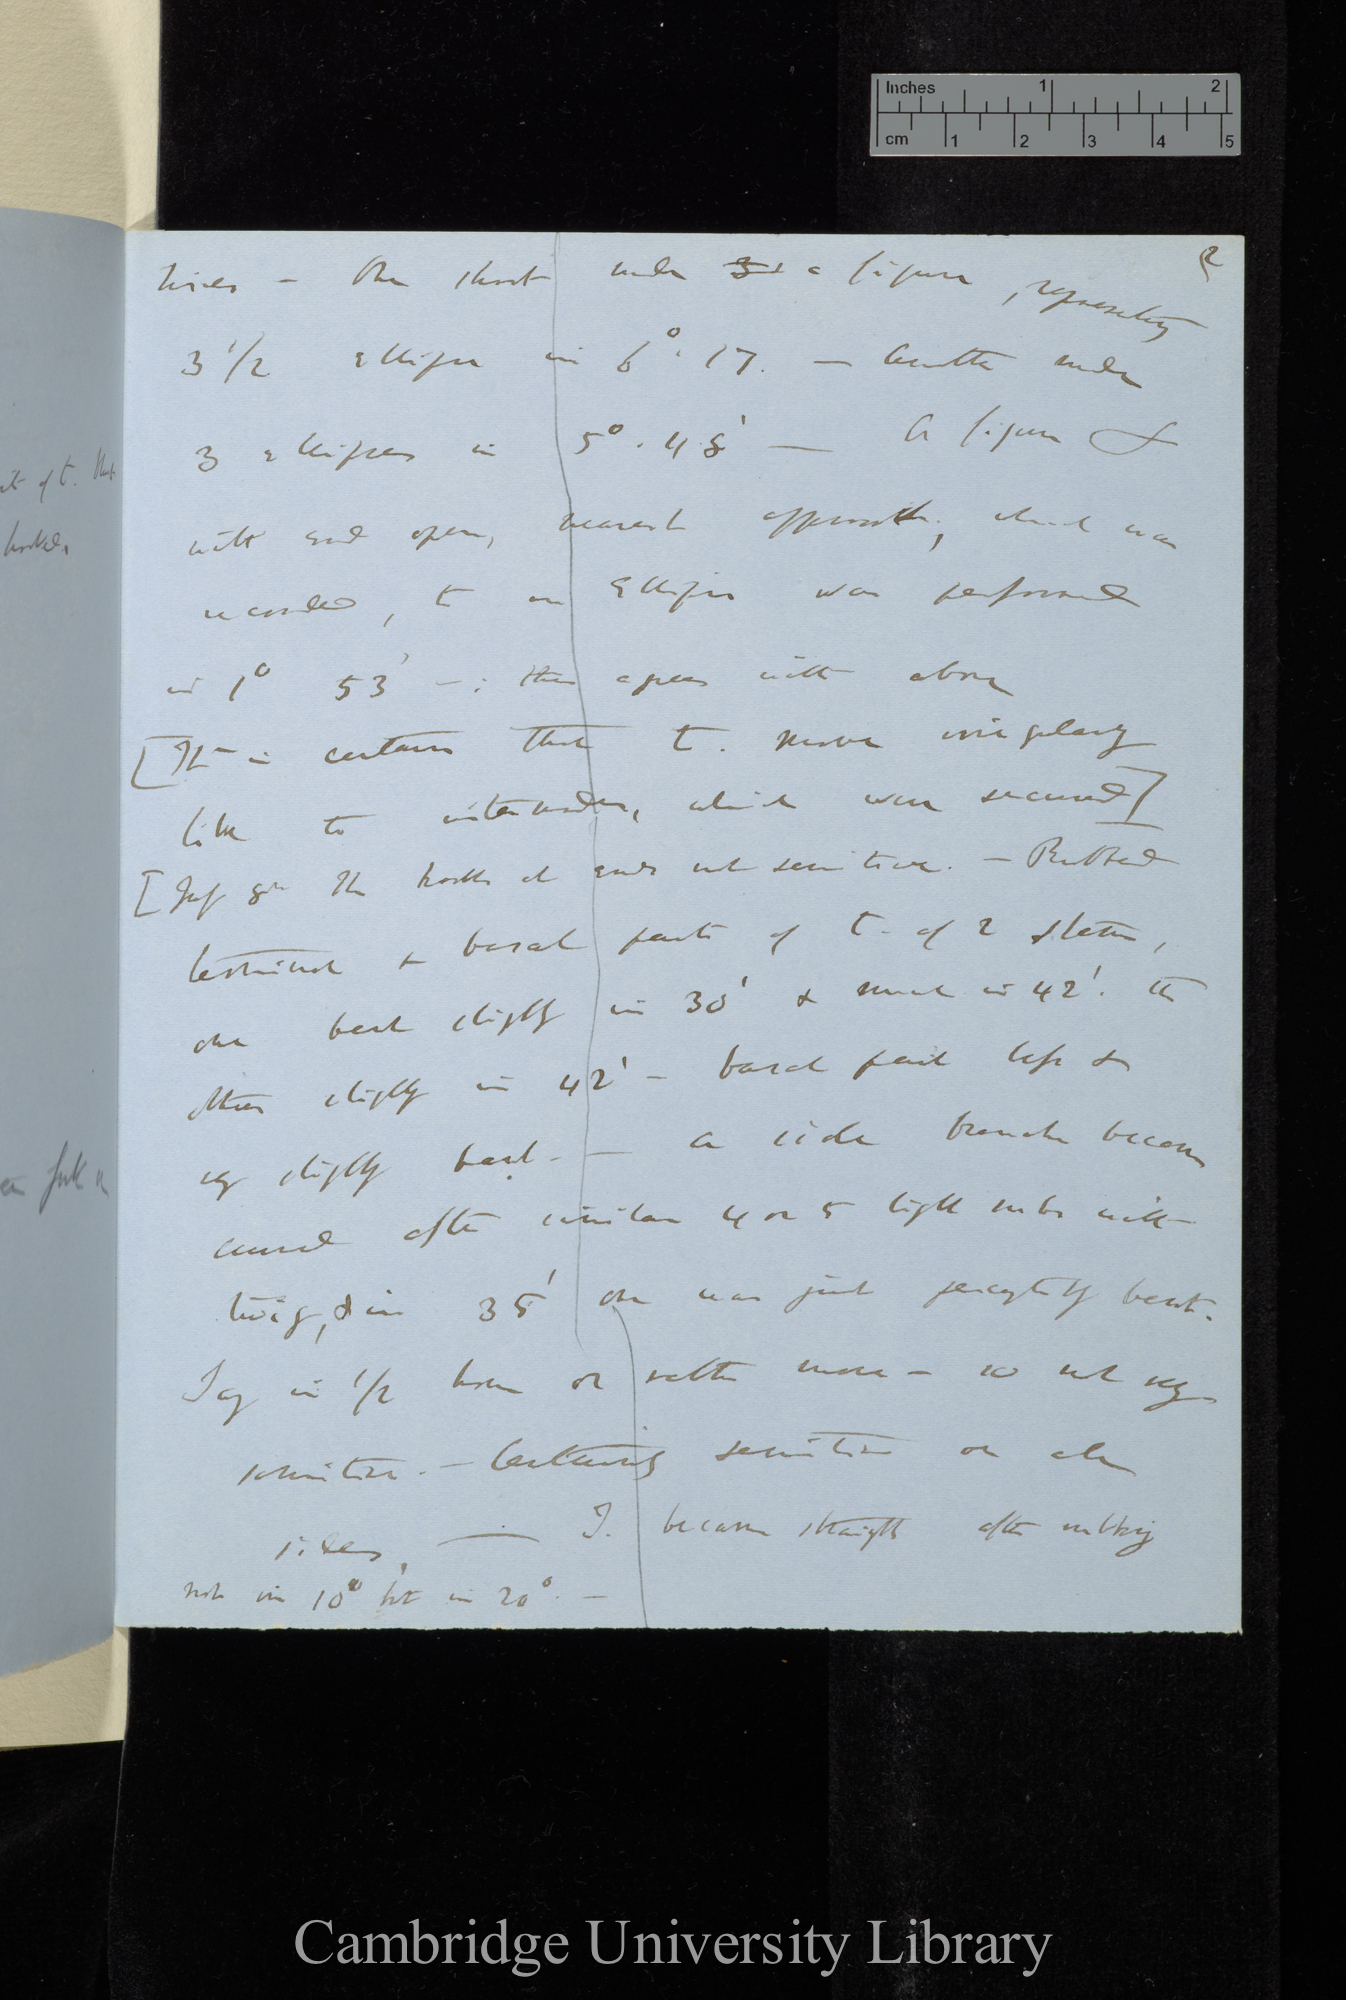 2
times — One shoot made a figure, representing
3 1/2 ellipses in 6°. 17. — Another made
3 ellipses in 5°. 48' — A figure of
with end open, nearest approach, which was
recorded, to an Ellipse was performed
in 1° 53' —: this agrees with above
[It is certain that t. move irregularly
like to internodes, which were secured]
[July 8th The hooks at ends not sensitive. — Rubbed
terminal & basal parts of t. of 2 ,
one bent slightly in 30' & much in 42'. The
other slightly in 42' — basal part less &
very slightly bent. — a side branch became
curved after similar 4 or 5 light rubs with
twig, & in 35' one was just perceptibly bent.
Say in 1/2 hour or rather more — so not very
sensitive. — Certainly sensitive on all
sides. — T. became straight after rubbing
not in 10° but in 20°. —
of t.
hooked.
Inches 1 2
cm 1 2 3 4 5
Cambridge University Library